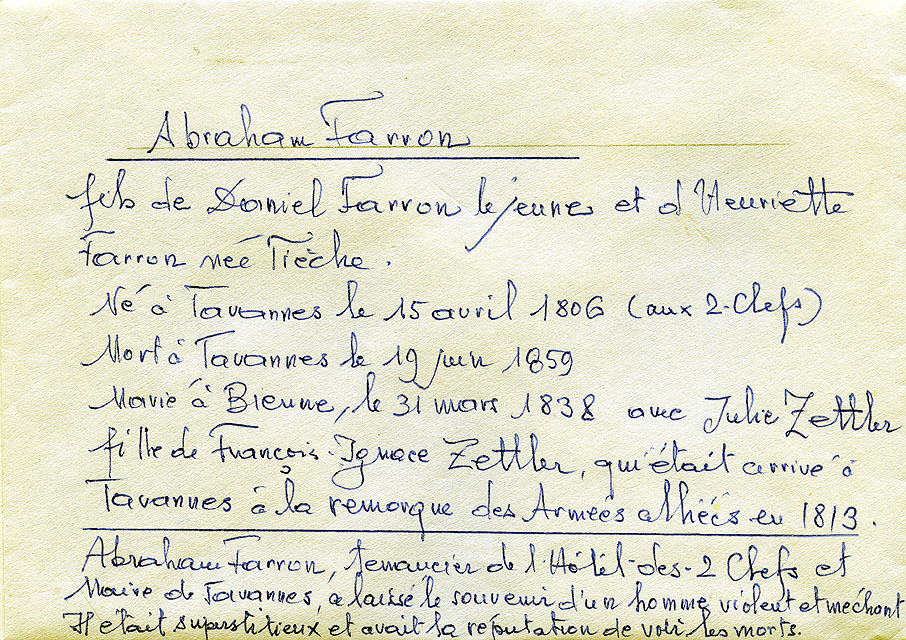 Abraham Farron
fils de Daniel Farron le jeune et d'Henriette
Farron née Tièche.
Né à Tavannes le 15 avril 1806 (aux 2-Clefs)
Mort à Tavannes le 19 juin 1859
Marié à Bienne, le 31 mars 1838 avec Julie Zettler
fille de François-Ignace Zettler, qui était arrivé à
Tavannes à la remorque des Armées alliéés en 1813.
Abraham Farron, tenancier de l'Hôtel-des-2 Clefs et
Maire de Tavannes, a laissé le souvenir d'un homme violent et méchant
Il était superstitieux et avait la réputation de voir les morts.